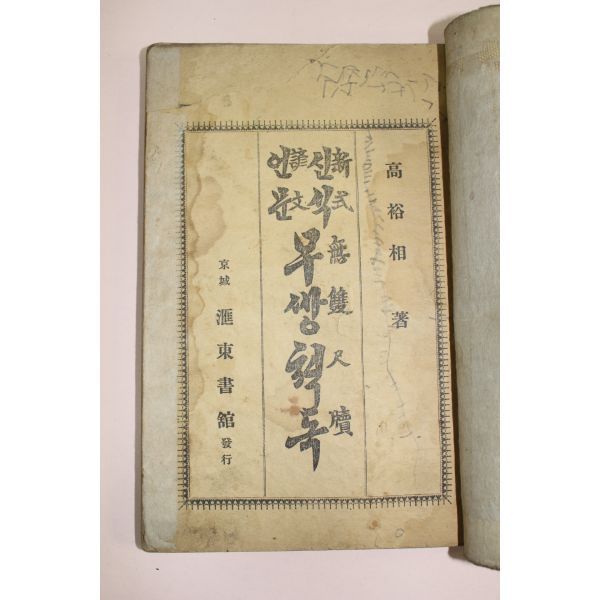 高裕相 著
新式 諺文
신식 언문
無雙尺牘
무쌍쳑독
京城 滙東書舘 發行